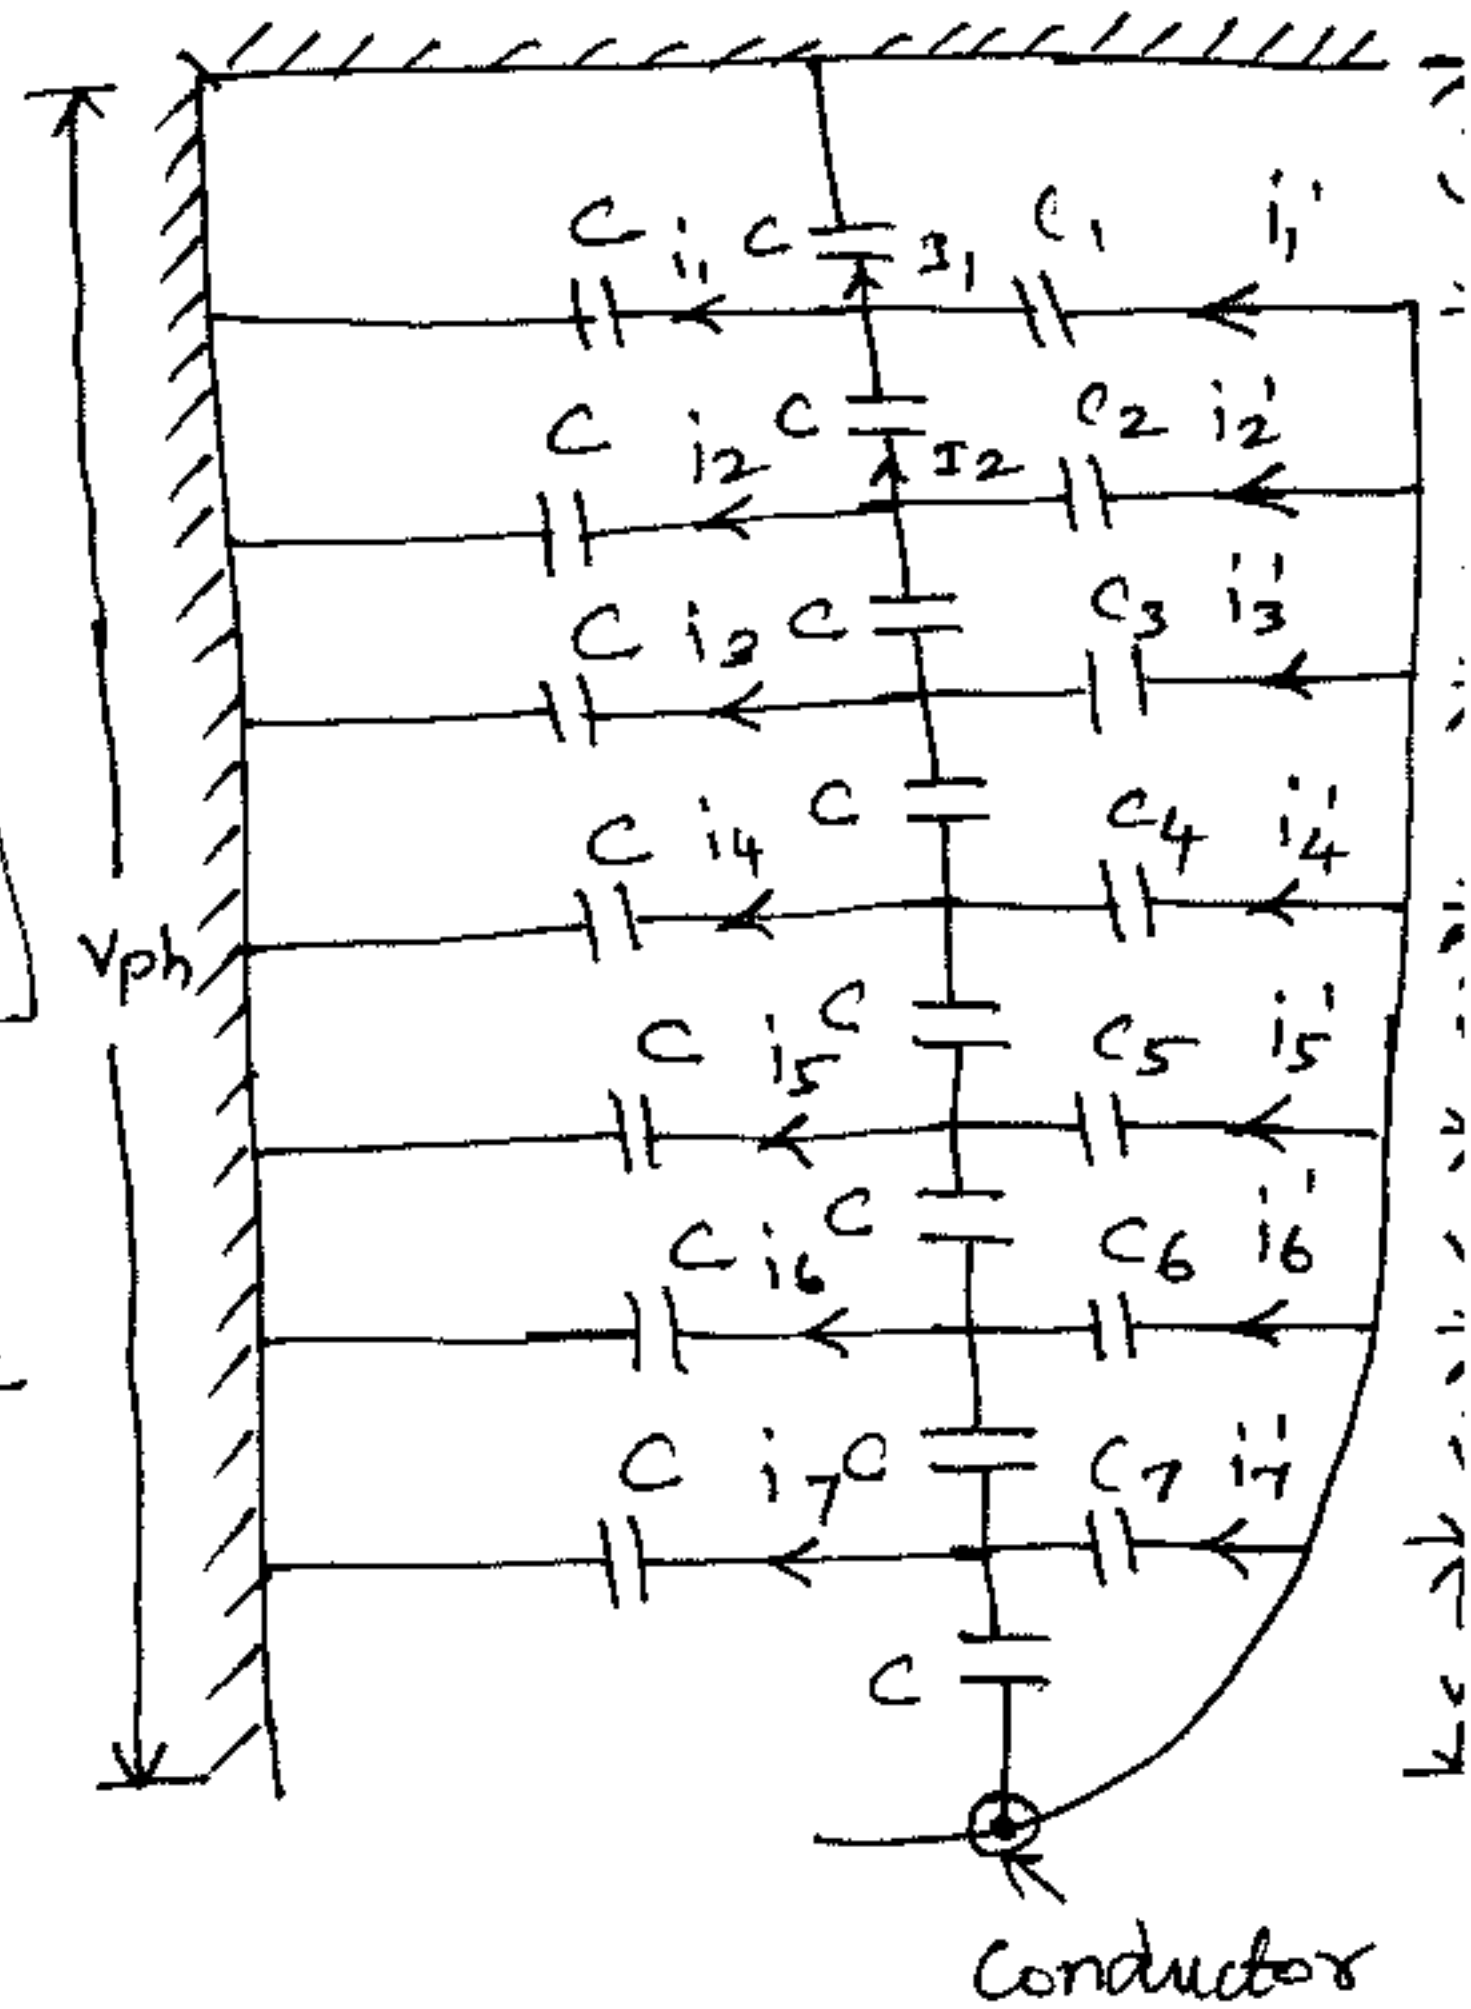 C i1 C I1 C1 i1'
C i2 C I2 C2 i2'
C i3 C C3 i3'
C i4 C C4 i4'
Vph
C i5 C C5 i5'
C i6 C C6 i6'
C i7 C C7 i7'
C
Conductor